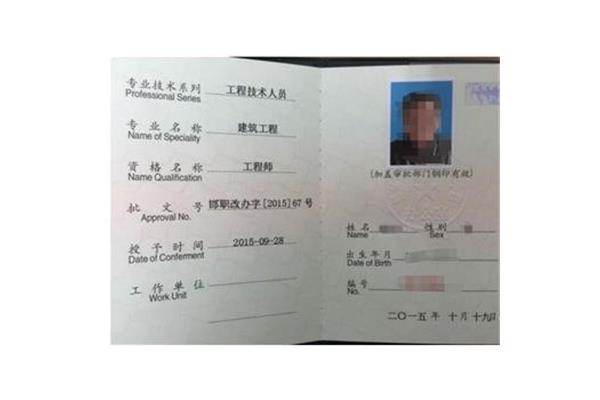 专业技术系列 工程技术人员
Professional Series
专业名称 建筑工程
Name of Speciality
资格名称 工程师
Name Qualification
批文号 邯职改办字[2015]67号
Approval No.
授予时间 2015-09-28
Date of Conferment
工作单位
Work Unit
(加盖审批部门钢印有效)
姓名 性别
Name Sex
出生年月
Date of Birth
编号
No.
二〇一五年 十月 十九日